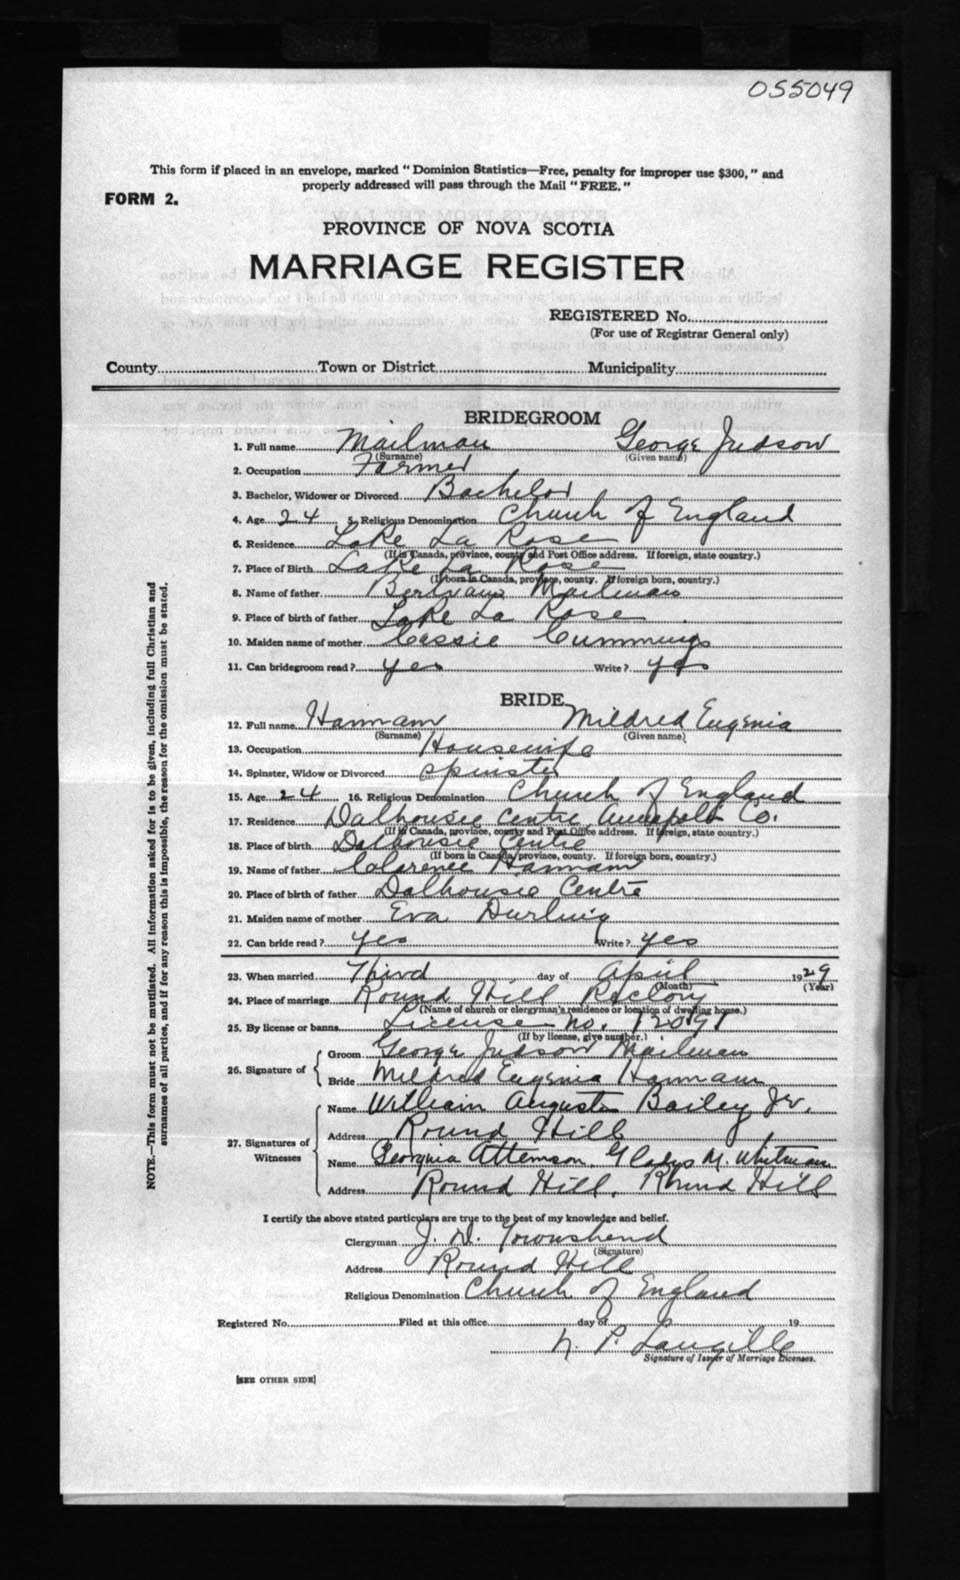 055049
This form if placed in an envelope, marked "Dominion Statistics—Free, penalty for improper use $300," and
properly addressed will pass through the Mail "FREE."
FORM 2.
PROVINCE OF NOVA SCOTIA
MARRIAGE REGISTER
REGISTERED No.
(For use of Registrar General only)
County Town or District Municipality
BRIDEGROOM
1. Full name Mailman George Judson
(Surname) (Given name)
2. Occupation Farmer
3. Bachelor, Widower or Divorced Bachelor
4. Age 24 5. Religious Denomination Church of England
6. Residence Lake La Rose
(If in Canada, province, county and Post Office address. If foreign, state country.)
7. Place of Birth Lake La Rose
(If born in Canada, province, county. If foreign born, country.)
8. Name of father Mailman
9. Place of birth of father Lake La Rose
10. Maiden name of mother Cassie Cummings
11. Can bridegroom read? yes Write? yes
BRIDE
12. Full name Hannam Mildred Eugenia
(Surname) (Given name)
13. Occupation Housewife
14. Spinster, Widow or Divorced Spinster
15. Age 24 16. Religious Denomination Church of England
17. Residence Dalhousie Centre Annapolis Co.
(If in Canada, province, county and Post Office address. If foreign, state country.)
18. Place of birth Dalhousie Centre
(If born in Canada, province, county. If foreign born, country.)
19. Name of father Clarence Hannam
20. Place of birth of father Dalhousie Centre
21. Maiden name of mother Eva Durling
22. Can bride read? yes Write? yes
23. When married Third day of April 1929
(Month) (Year)
24. Place of marriage Round Hill Rectory
(Name of church or clergyman's residence or location of dwelling house.)
25. By license or banns License no.
(If by license, give number.)
26. Signature of Groom George Judson Mailman
Bride Mildred Eugenia Hannam
27. Signatures of Witnesses Name William Bailey Jr.
Address Round Hill
Name Georgina Gladys M. Whitman
Address Round Hill. Round Hill
I certify the above stated particulars are true to the best of my knowledge and belief.
Clergyman Townshend
(Signature)
Address Round Hill
Religious Denomination Church of England
Registered No. Filed at this office day of 19
N. P. Langille
Signature of Issuer of Marriage Licenses.
[SEE OTHER SIDE]
NOTE.—This form must not be mutilated. All information asked for is to be given, including full Christian and
surnames of all parties, and if for any reason this is impossible, the reason for the omission must be stated.